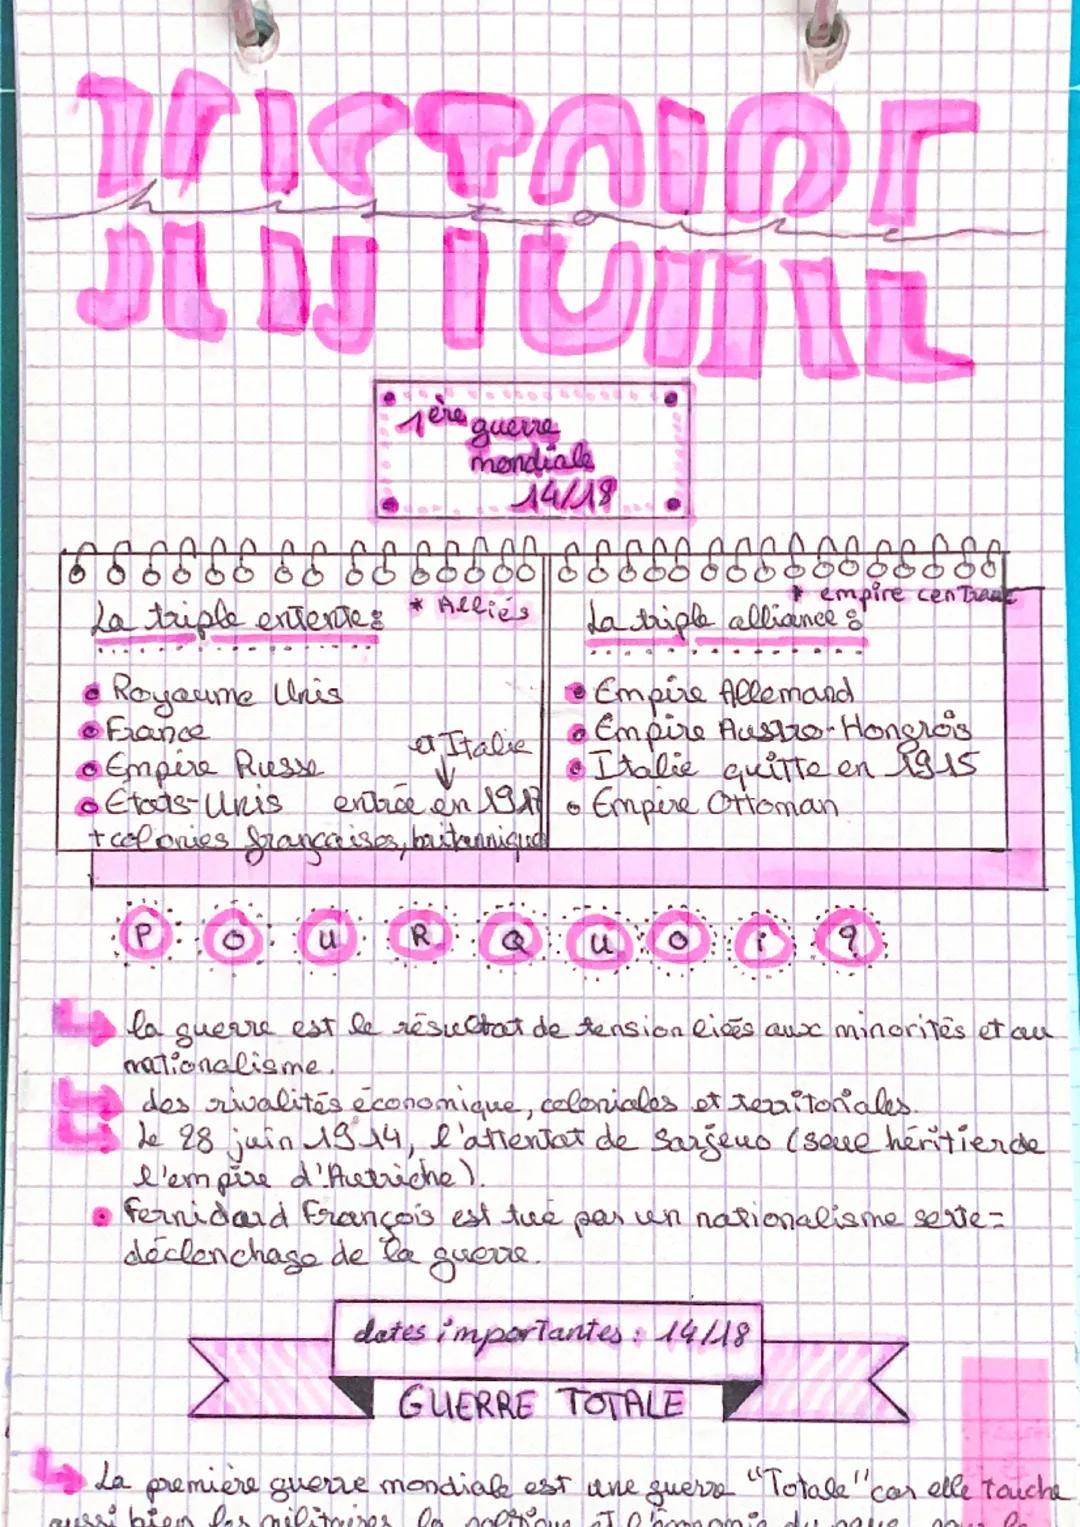 HISTOIRE
histoire
1ère guerre
mondiale
14/18
La triple entente : * Alliés
Royaume Unis
France
Empire Russe
et Italie
Etats-Unis entrée en 1917
+ colonies françaises, britannique
* empire centraux
La triple alliance :
Empire Allemand
Empire Austro-Hongrois
Italie quitte en 1915
Empire Ottoman
POURQUOi ?
la guerre est le résultat de tension liées aux minorités et au
nationalisme.
des rivalités économique, coloniales et territoriales.
Le 28 juin 1914, l'attentat de Sarjeuo (seue héritier de
l'empire d'Autriche).
Fernidard François est tué par un nationalisme serte =
déclenchage de la guerre.
dates importantes : 14/18
GUERRE TOTALE
La première guerre mondiale est une guerre "Totale" car elle touche
aussi bien les militaires, la politique et l'économie du pays